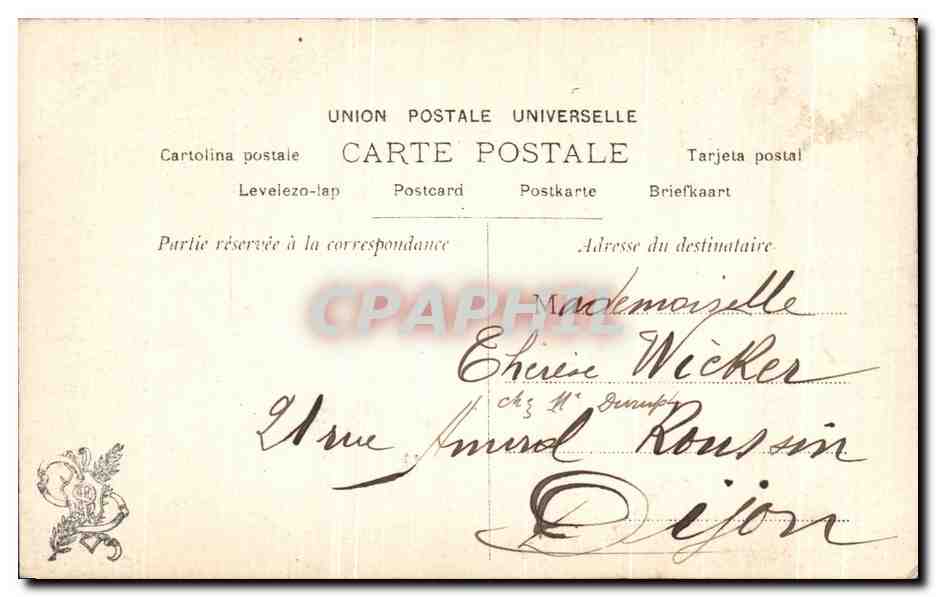 UNION POSTALE UNIVERSELLE
Cartolina postale CARTE POSTALE Tarjeta postal
Levelezo-lap Postcard Postkarte Briefkaart
Partie réservée à la correspondance
Adresse du destinataire
CPAPHIL
Mademoiselle
Thérèse Wicker
chez Me
21 rue Amiral Roussin
Dijon